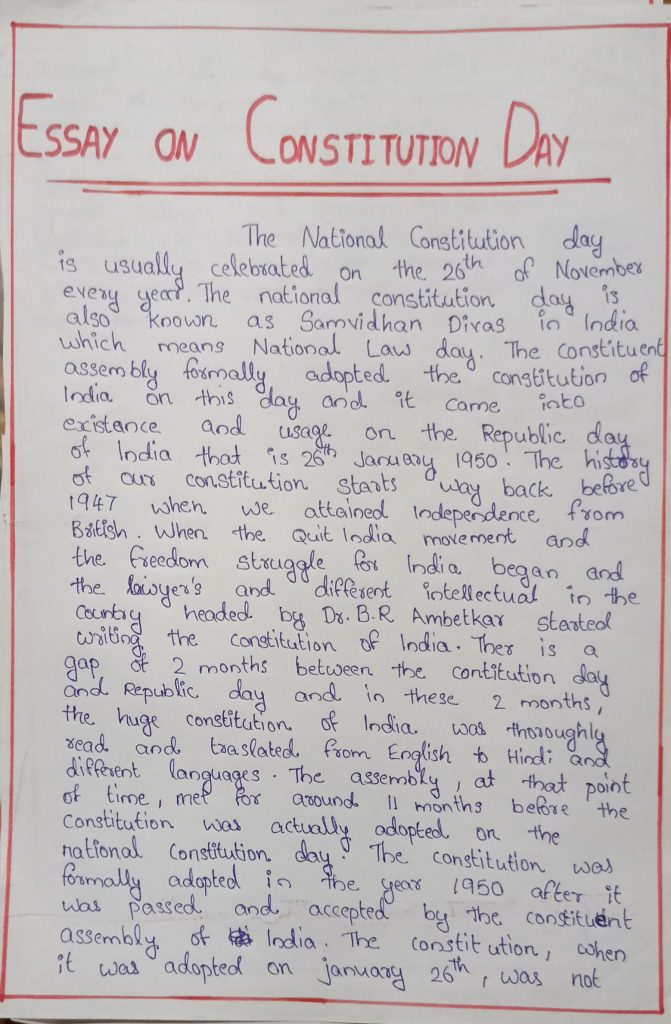 ESSAY ON CONSTITUTION DAY
The National Constitution day
is usually celebrated on the 26th of November
every year. The national constitution day is
also known as Samvidhan Divas in India
which means National Law day. The constituent
assembly formally adopted the constitution of
India on this day and it came into
existance and usage on the Republic day
of India that is 26th January 1950. The history
of our constitution starts way back before
1947 when we attained Independence from
British. When the Quit India movement and
the freedom struggle for India began and
the lawyer's and different intellectual in the
Country headed by Dr. B.R Ambetkar started
writing the constitution of India. Ther is a
gap of 2 months between the contitution day
and Republic day and in these 2 months,
the huge constitution of India was thoroughly
read and traslated from English to Hindi and
different languages. The assembly, at that point
of time, met for around 11 months before the
Constitution was actually adopted on the
national Constitution day. The constitution was
formally adopted in the year 1950 after it
was passed and accepted by the constituent
assembly of India. The constitution, when
it was adopted on january 26th, was not